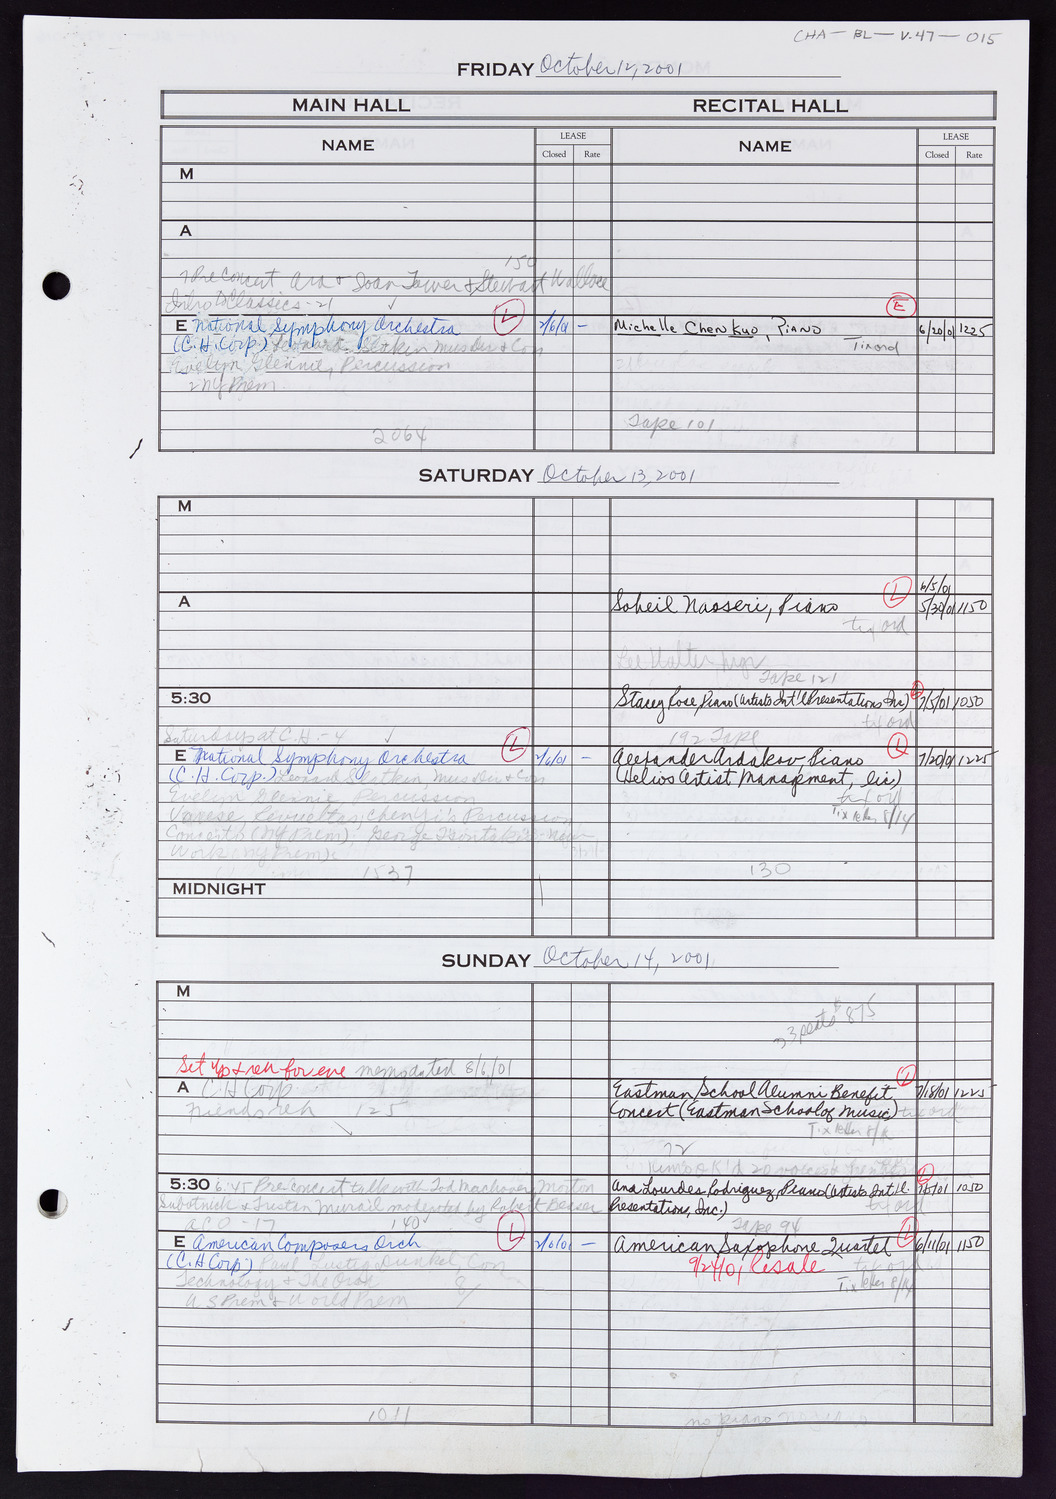 CHA - BL - V.47 - 015
FRIDAY October 12, 2001
MAIN HALL RECITAL HALL
NAME LEASE Closed Rate NAME LEASE Closed Rate
M
A
150
PreConcert and Joan Tower & Stewart Wallace
Intro to Classics - 21 ✓
E National Symphony Orchestra L 2/6/01 - Michelle Chen Kuo, Piano E 6/20/01 1225
(C.H. Corp.) Leonard Slatkin Mus Dir & Con Tix ord
Evelyn Glennie, Percussion
2 NY Prem
Tape 101
2064
SATURDAY October 13, 2001
M
6/5/01
A Soheil Nasseri, Piano L 5/30/01 1150
tix ord
Lee Walter, mgr
Tape 121
5:30 Stacey Rose, Piano (Artists Int'l Presentations Inc) 7/5/01 1050
tix ord
Saturdays at C.H. - 4 ✓ 192 Tape
E National Symphony Orchestra L 2/6/01 - Alexander Ardakov Piano L 7/20/01 1225
(C.H. Corp.) Leonard Slatkin, Mus Dir & Con (Helios Artist Management, Inc)
Evelyn Glennie Percussion tix ord
Varese, Revueltas, Chen Yi's Percussion Tix letter 8/14
Concerto (NY Prem), George Tsontakis New
Work (NY Prem)
1537 130
MIDNIGHT
SUNDAY October 14, 2001
M
33 seats 875
Set up & reh for eve memo dated 8/6/01
A C.H. Corp Eastman School Alumni Benefit L 7/18/01 1225
Friends reh 125 Concert (Eastman School of Music) tix ord
Tix letter 8/14
72
5:30 6:45 Preconcert talk with Tod Machover, Morton Ana Lourdes Rodriguez, Piano (Artists Int'l. L 7/5/01 1050
Subotnick & Tristan Murail moderated by Robert Beaser Presentations, Inc.) tix ord
ACO - 17 140 Tape 94
E American Composers Orch L 2/6/01 - American Saxophone Quartet L 6/11/01 1150
(C.H. Corp) Paul Lustig Dunkel, Con 9/24/01 Resale tix ord
Technology & The Orch Tix letter 8/14
US Prem & World Prem
1011 no piano